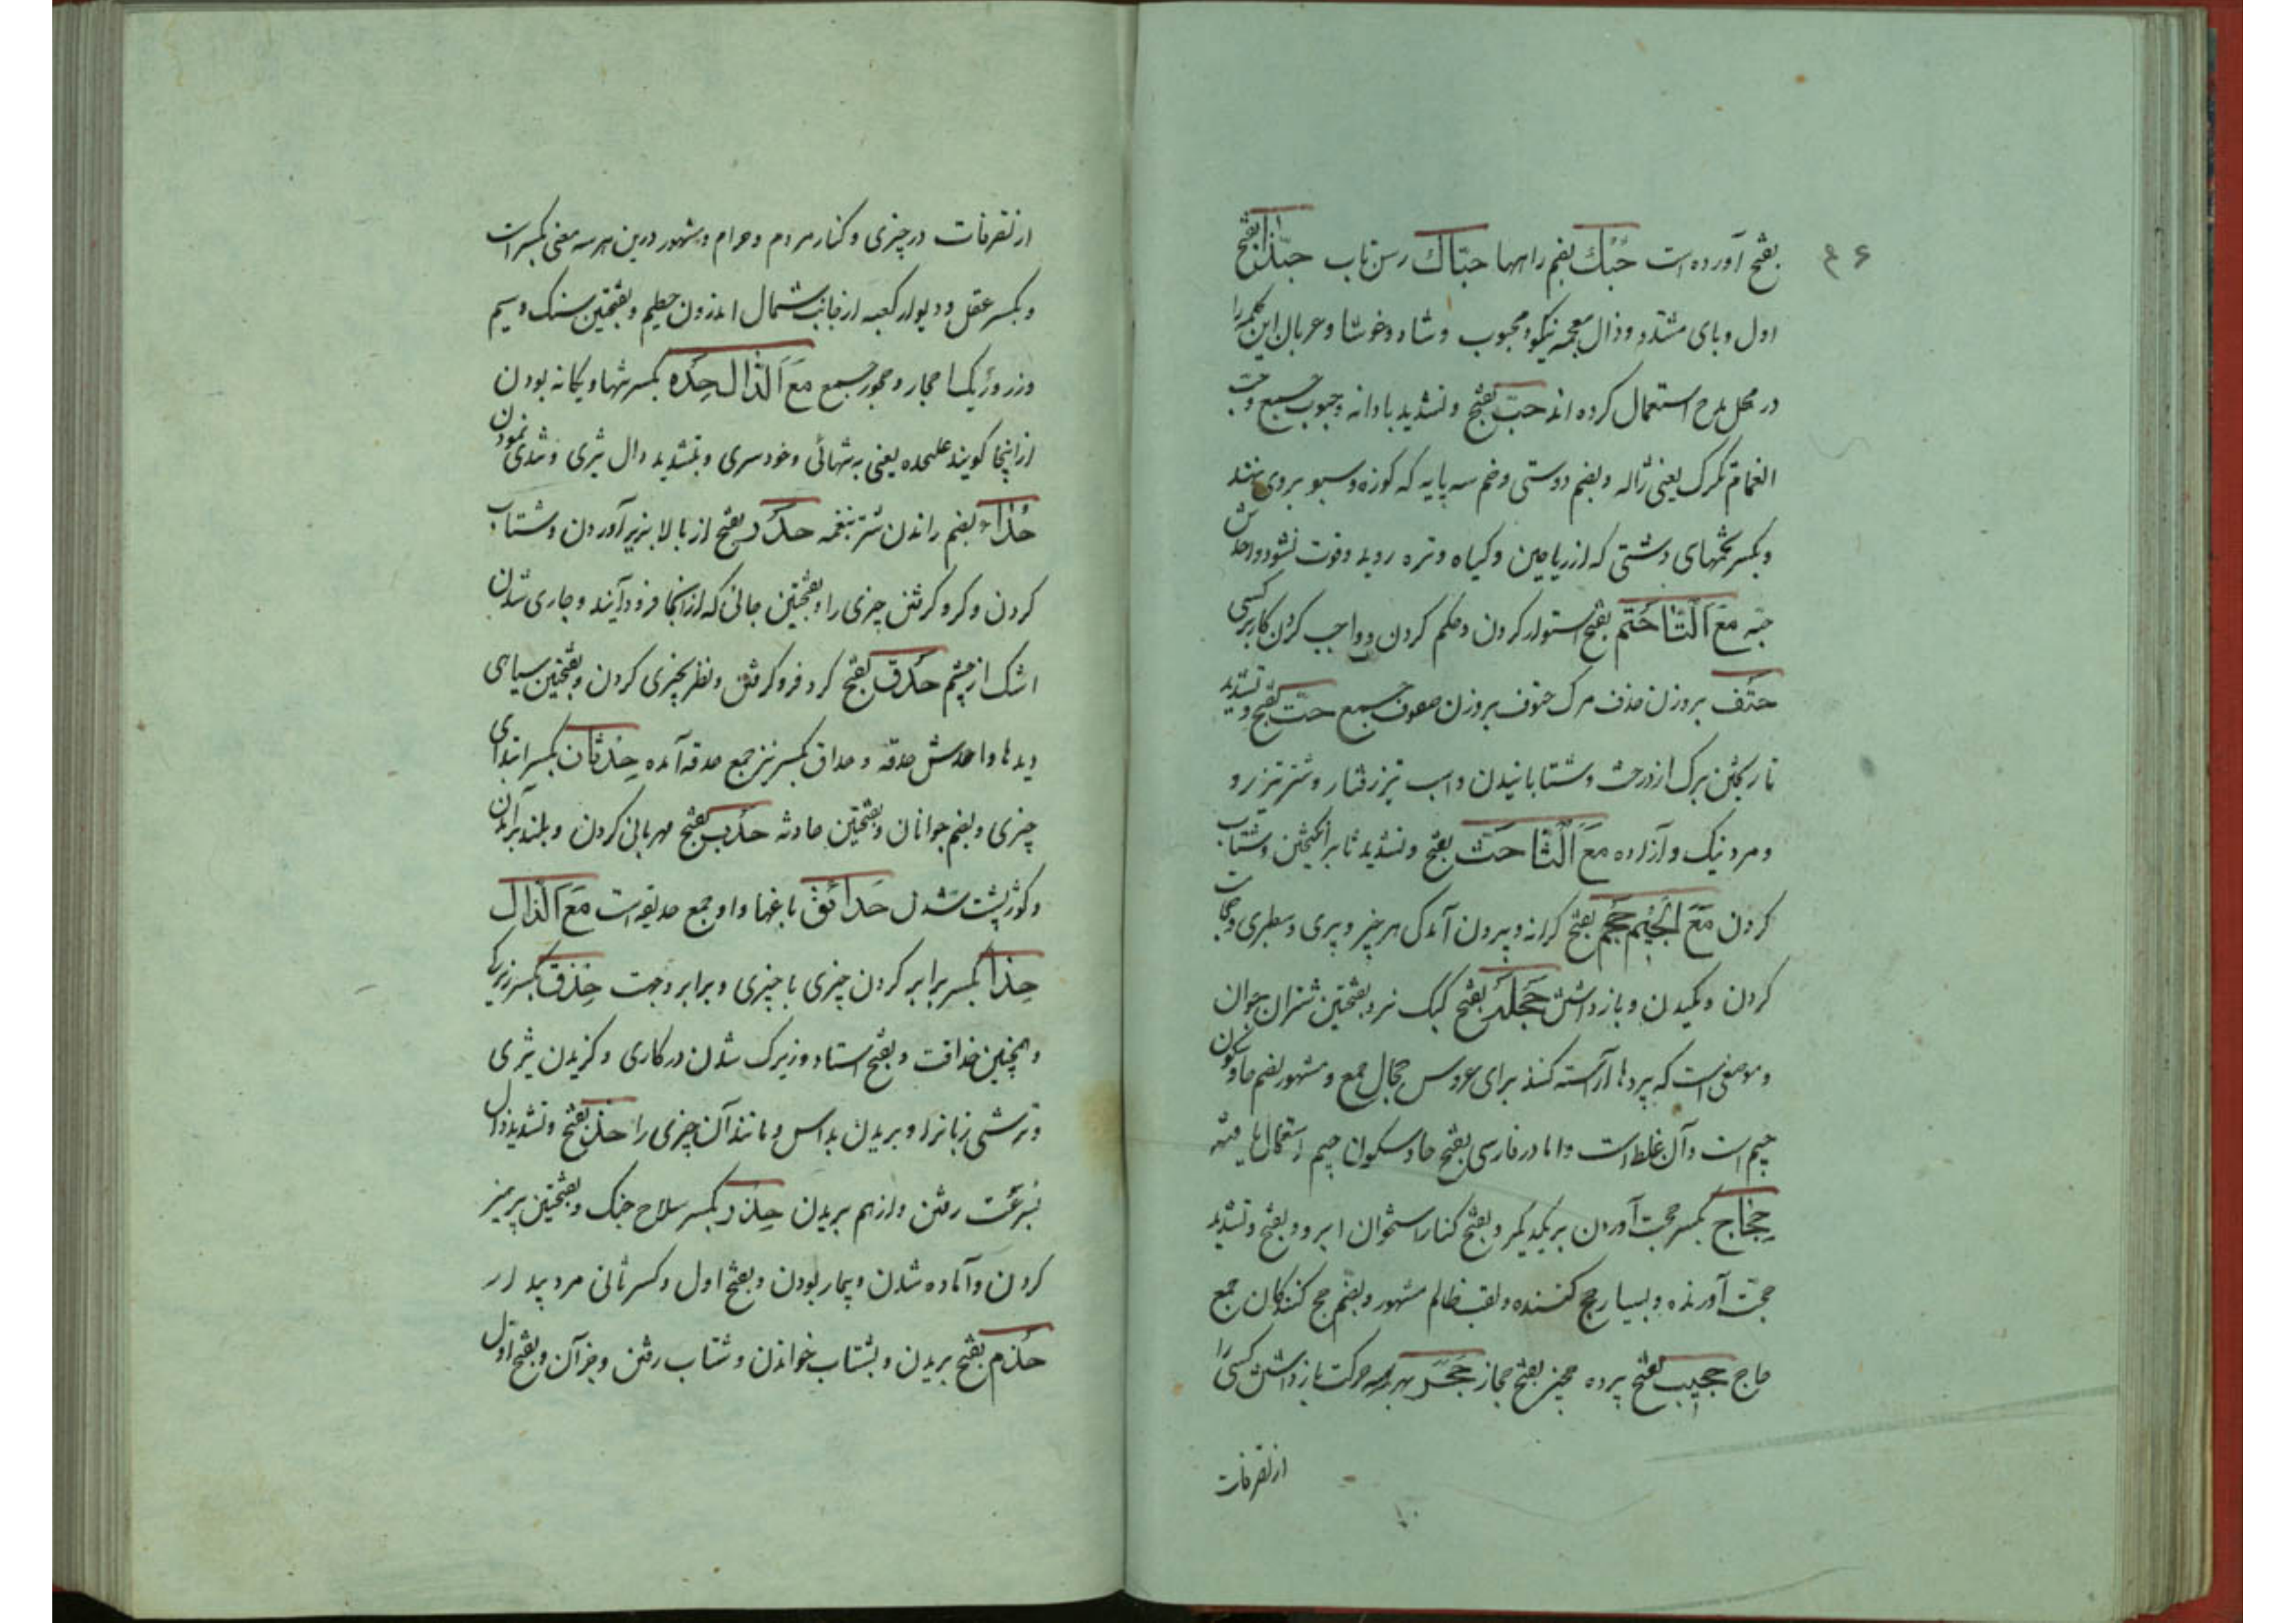 بفتح آورده است حُبُك بضم راهها حبّاك رسن تاب حبّذا بفتح
اول و بای مشدد و ذال معجمه نیکو و محبوب و شاد و خوشا و عربان این کلمه را
در محل مدح استعمال کرده اند حبّ بفتح و تشدید با دانه و حبوب جمع و حب
الغمام تکرک یعنی ژاله و بضم دوستی و خم سه پایه که کوزه و سبو بر وی نهند
و بکسر تخمهای دشتی که از ریاحین و کیاه و تره روید و قوت نشود واحدش
حبه مَعَ اَلتّا حَتم بفتح استوار کردن و حکم کردن و واجب کردن کار بر کسی
حتف بر وزن حذف مرک حتوف بر وزن صفوف جمع حتّ بفتح و تشدید
تا ریختن برک از درخت و شتابانیدن و اسب تیز رفتار و شتر تیزرو
و مرد نیک و آزاده مَعَ اَلثّا حَثّ بفتح و تشدید ثا برانکیختن و شتاب
کردن مَعَ اَلجیْم حَجم بفتح کرانه و بیرون آمدکی هر چیز و پری و سطبری و حجامت
کردن و مکیدن و باز داشتن حَجَلَه بفتح کبک نر و بفتحتین شتران جوان
و موضعی است که پردها آراسته کنند برای عروس حجال جمع و مشهور بضم حا و سکون
جیم است و آن غلط است و اما در فارسی بفتح حا و سکون جیم استعمال یافته
حِجَاج بکسر حجت آوردن بر یکدیکر و بفتح کنار استخوان ابرو و بفتح و تشدید
حجت آورنده و بسیار حج کننده و لقب ظالم مشهور و بضم حج کنندکان جمع
حاج حجیب بفتح پرده حجیز بفتح حجاز حَجَر بهر سه حرکت باز داشتن کسی را
از تصرفات
از تصرفات در چیزی و کنار مردم و حرام و مشهور درین هر سه معنی بکسر است
و بکسر عقل و دیوار کعبه از جانب شمال اندرون حطیم و بفتحتین سنک و سیم
و زر و ریک احجار و حجور جمع مَعَ اَلدّال حِدَه بکسر تنها و یکانه بودن
از اینجا کویند علیحده یعنی به تنهائی و خودسری و بتشدید دال تیزی و تندی نمودن
حُداء بضم راندن شتر بنغمه حدر بفتح از بالا بزیر آوردن و شتاب
کردن و کرو کرفتن چیزی را و بفتحتین جائی که از آنجا فرود آیند و جاری شدن
اشک از چشم حَدق بفتح کرد فرو کرفتن و نظر بچیزی کردن و بفتحتین سیاهی
دیدها واحدش حدقه و حداق بکسر نیز جمع حدقه آمده حِدثان بکسر ابتدای
چیزی و بضم جوانان و بفتحتین حادثه حدب بفتح مهربانی کردن و بلند برآمدن
و کوژ پشت شدن حَدائق باغها و او جمع حدیقه است مَعَ اَلذّال
حِذا بکسر برابر کردن چیزی با چیزی و برابر و جهت حِذق بکسر زیرکی
و همچنین حذاقت و بفتح استاد و زیرک شدن در کاری و کزیدن تیزی
و ترشی زبانرا و بریدن بداس و مانند آن چیزی را حذ بفتح و تشدید ذال
بسرعت رفتن و از هم بریدن حِذر بکسر سلاح جنک و بفتحتین پرهیز
کردن و آماده شدن و بیمار بودن و بفتح اول و کسر ثانی مرد بیدار
حَذم بفتح بریدن و بشتاب خواندن و شتاب رفتن و جز آن و بفتح اول